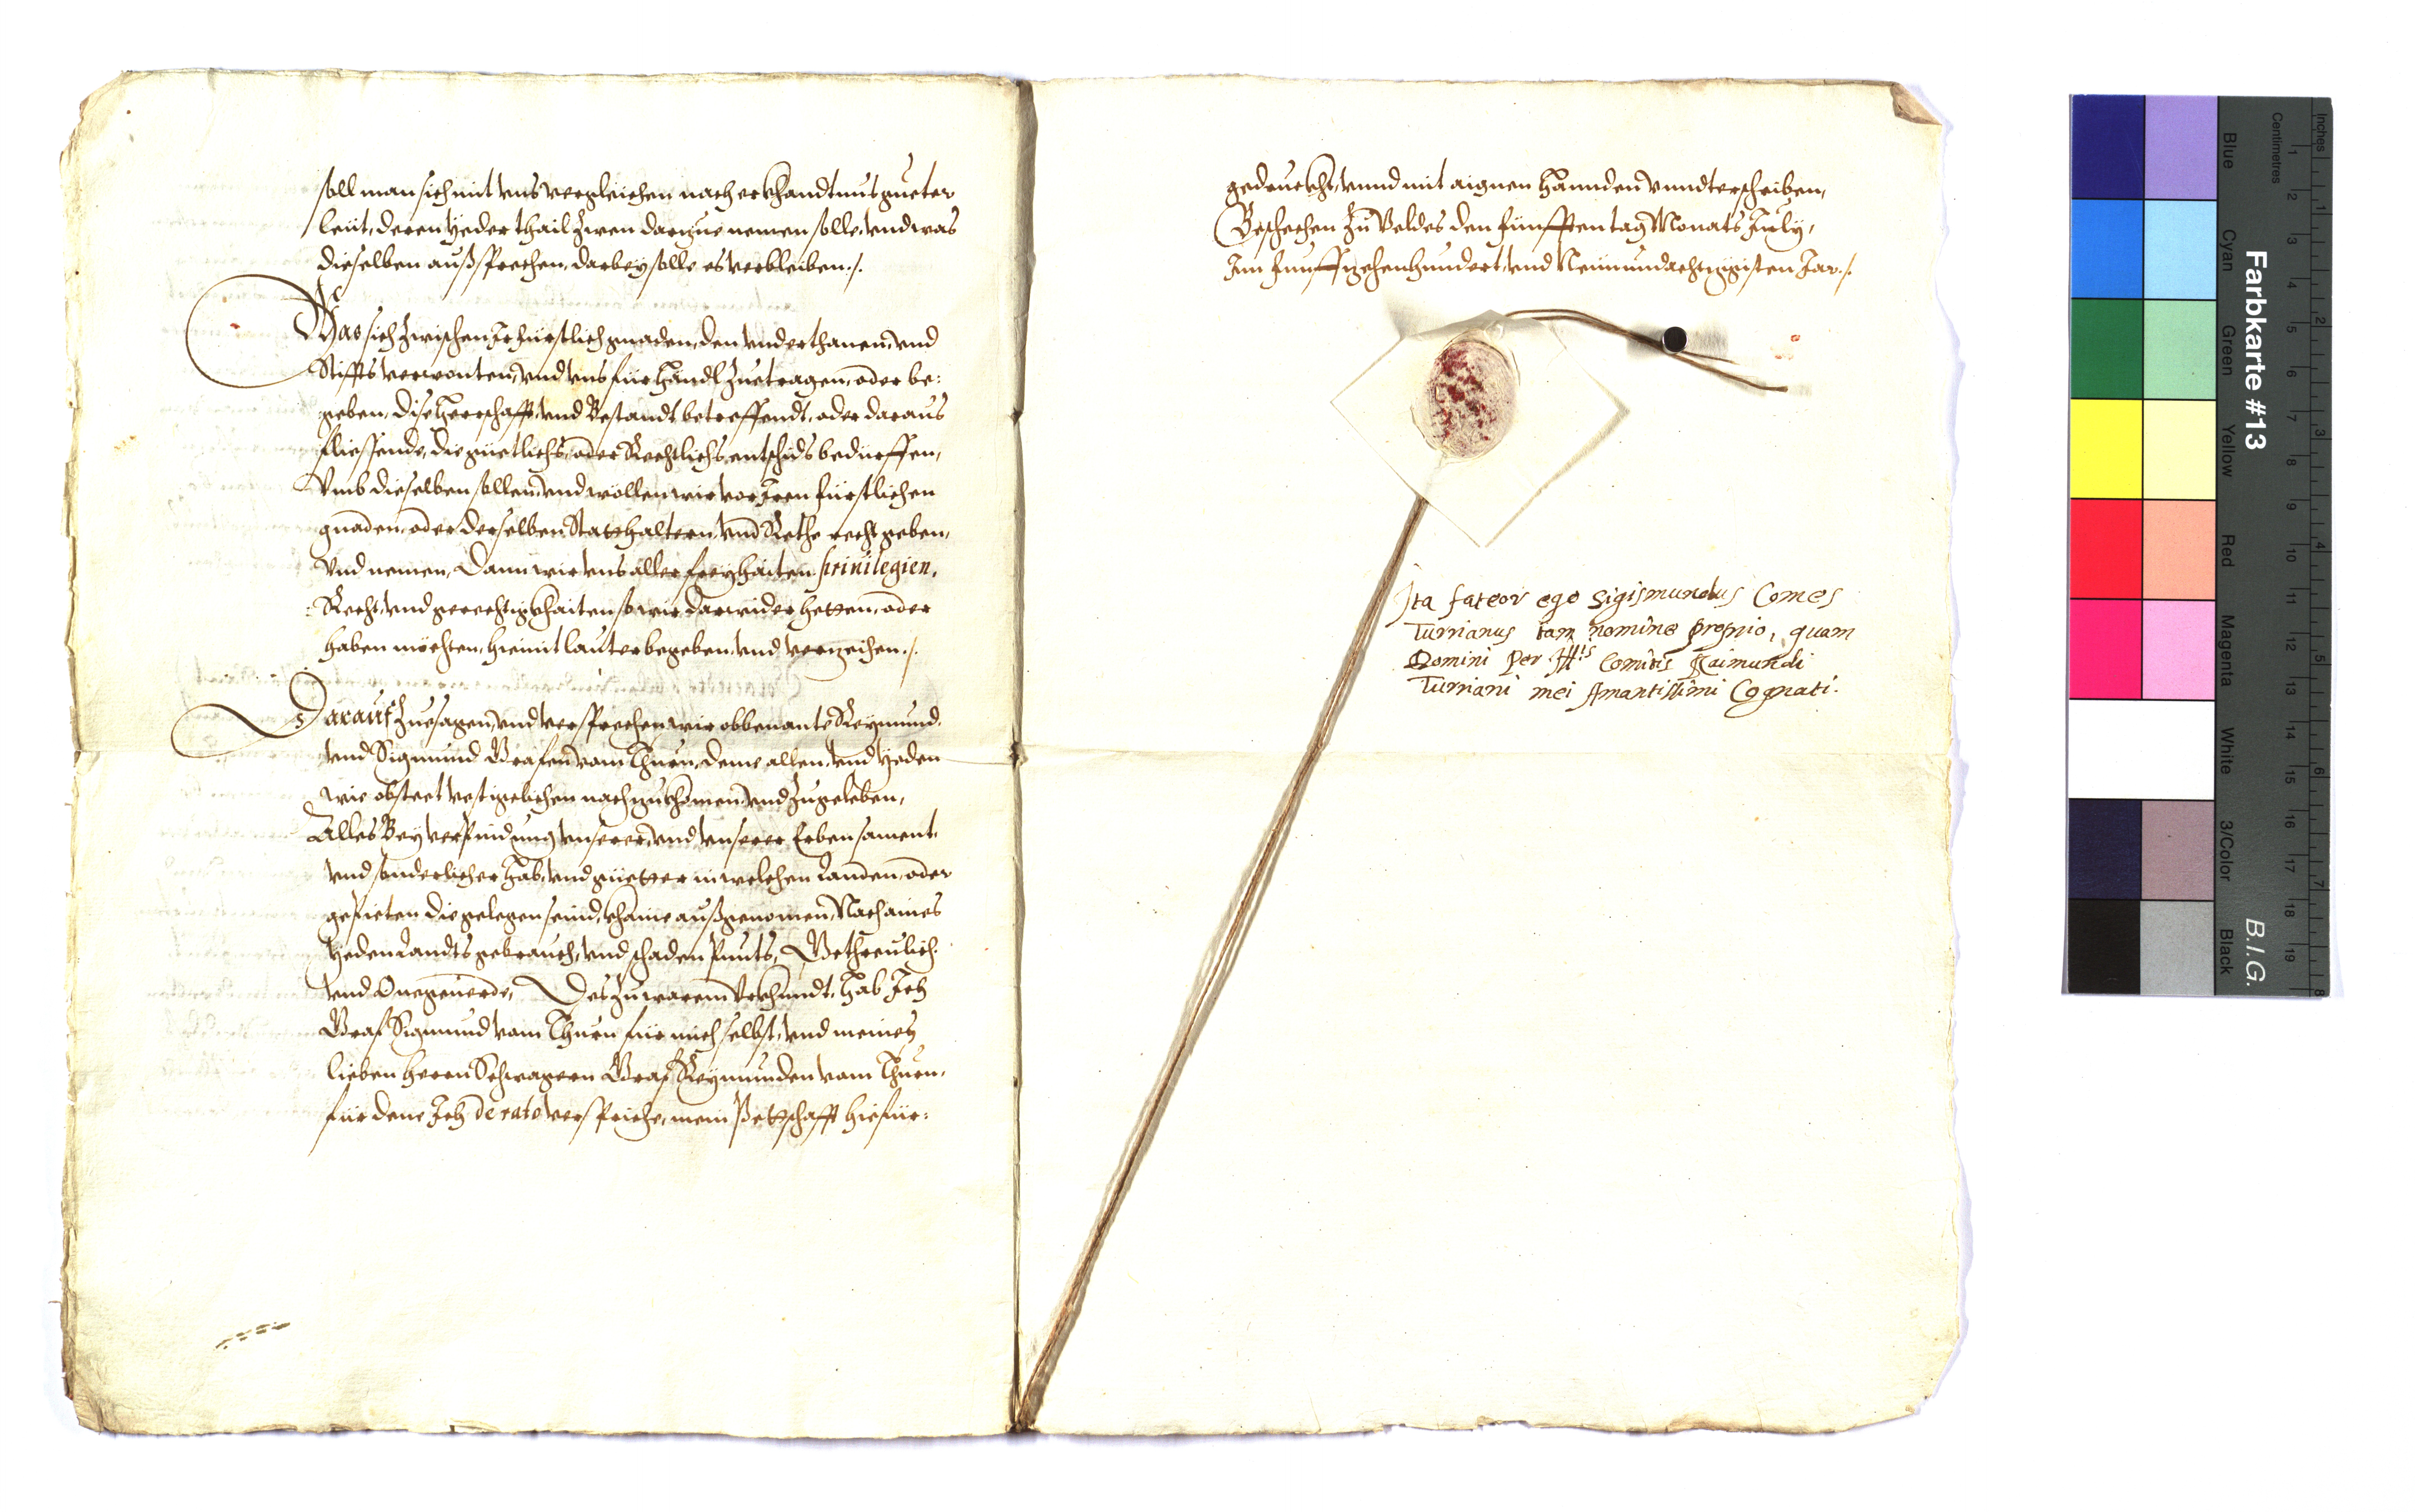 soll man sich mit vns vergleichen nach erkhandtnus gueter
leüt, deren yeder thail zwen darzue nemen solle, vnd was
dieselben außsprechen, darbey solle es verbleiben ./.
Was sich zwischen Ir fürstlich gnaden, den vnderthanen, vnd
Stiffts verwonten, vnd vns für Hänndl zuetragen, oder be:
geben, dise Herrschafft, vnd Bestandt betreffendt, oder daraus
fliessende, die güetlichs, oder Rechtlichs entschids bedürffen,
Vmb dieselben sollen, vnd wöllen wir vor Iren fürstlichen
gnaden, oder derselben Statthaltern, vnd Rethe recht geben,
vnd nemen, Dann wir vns aller freyhaiten priuilegien,
Recht, vnd gerechtigkhaiten so wir darwider hetten, oder
haben möchten, hiemit lauter begeben, vnd verzeihen ./.
Darauf zuesagen, vnd versprechen wir obbenante Reymund
vnd Sigmund Grafen vom Thurn, deme allem, vnd yeden
wie obsteet vestigelichen nachzukhomen, vnd zugeleben,
Alles Bey verpindung vnserer, vnd vnserer Erben sament
vnd sonderlicher Hab, vnd güetter in welchen Landen, oder
gepieten die gelegen seind, khaine außgenomen, Nach aines
yeden Landts gebrauch, vnd schaden punts, Getreulich
vnd Onegeuerde, Des zu warem Vrkhundt, hab Ich
Graf Sigmund vom Thurn für mich selbst, vnd meines
lieben herrn Schwagern Graf Reymunden vom Thurn,
für dene Ich de rato verspriche, mein Pettschafft hiefür:
gedruckht, vnnd mit aignen Hannden vnndterschriben,
Beschehen Zu Veldes den fünfften tag Monats July,
Im funffzehenhundert, vnd Neünundachtzigisten Jar ./.
Ita fateor ego Sigismundus Comes
Turrianus tam nomine proprio, quam
Domini Per Ill:is Comitis Raimundi
Turriani mei Amantissimi Cognati.
Farbkarte #13
B.I.G.
Blue
Cyan
Green
Yellow
Red
Magenta
White
3/Color
Black
Centimetres
Inches
1 2 3 4 5 6 7 8 9 10 11 12 13 14 15 16 17 18 19
1 2 3 4 5 6 7 8